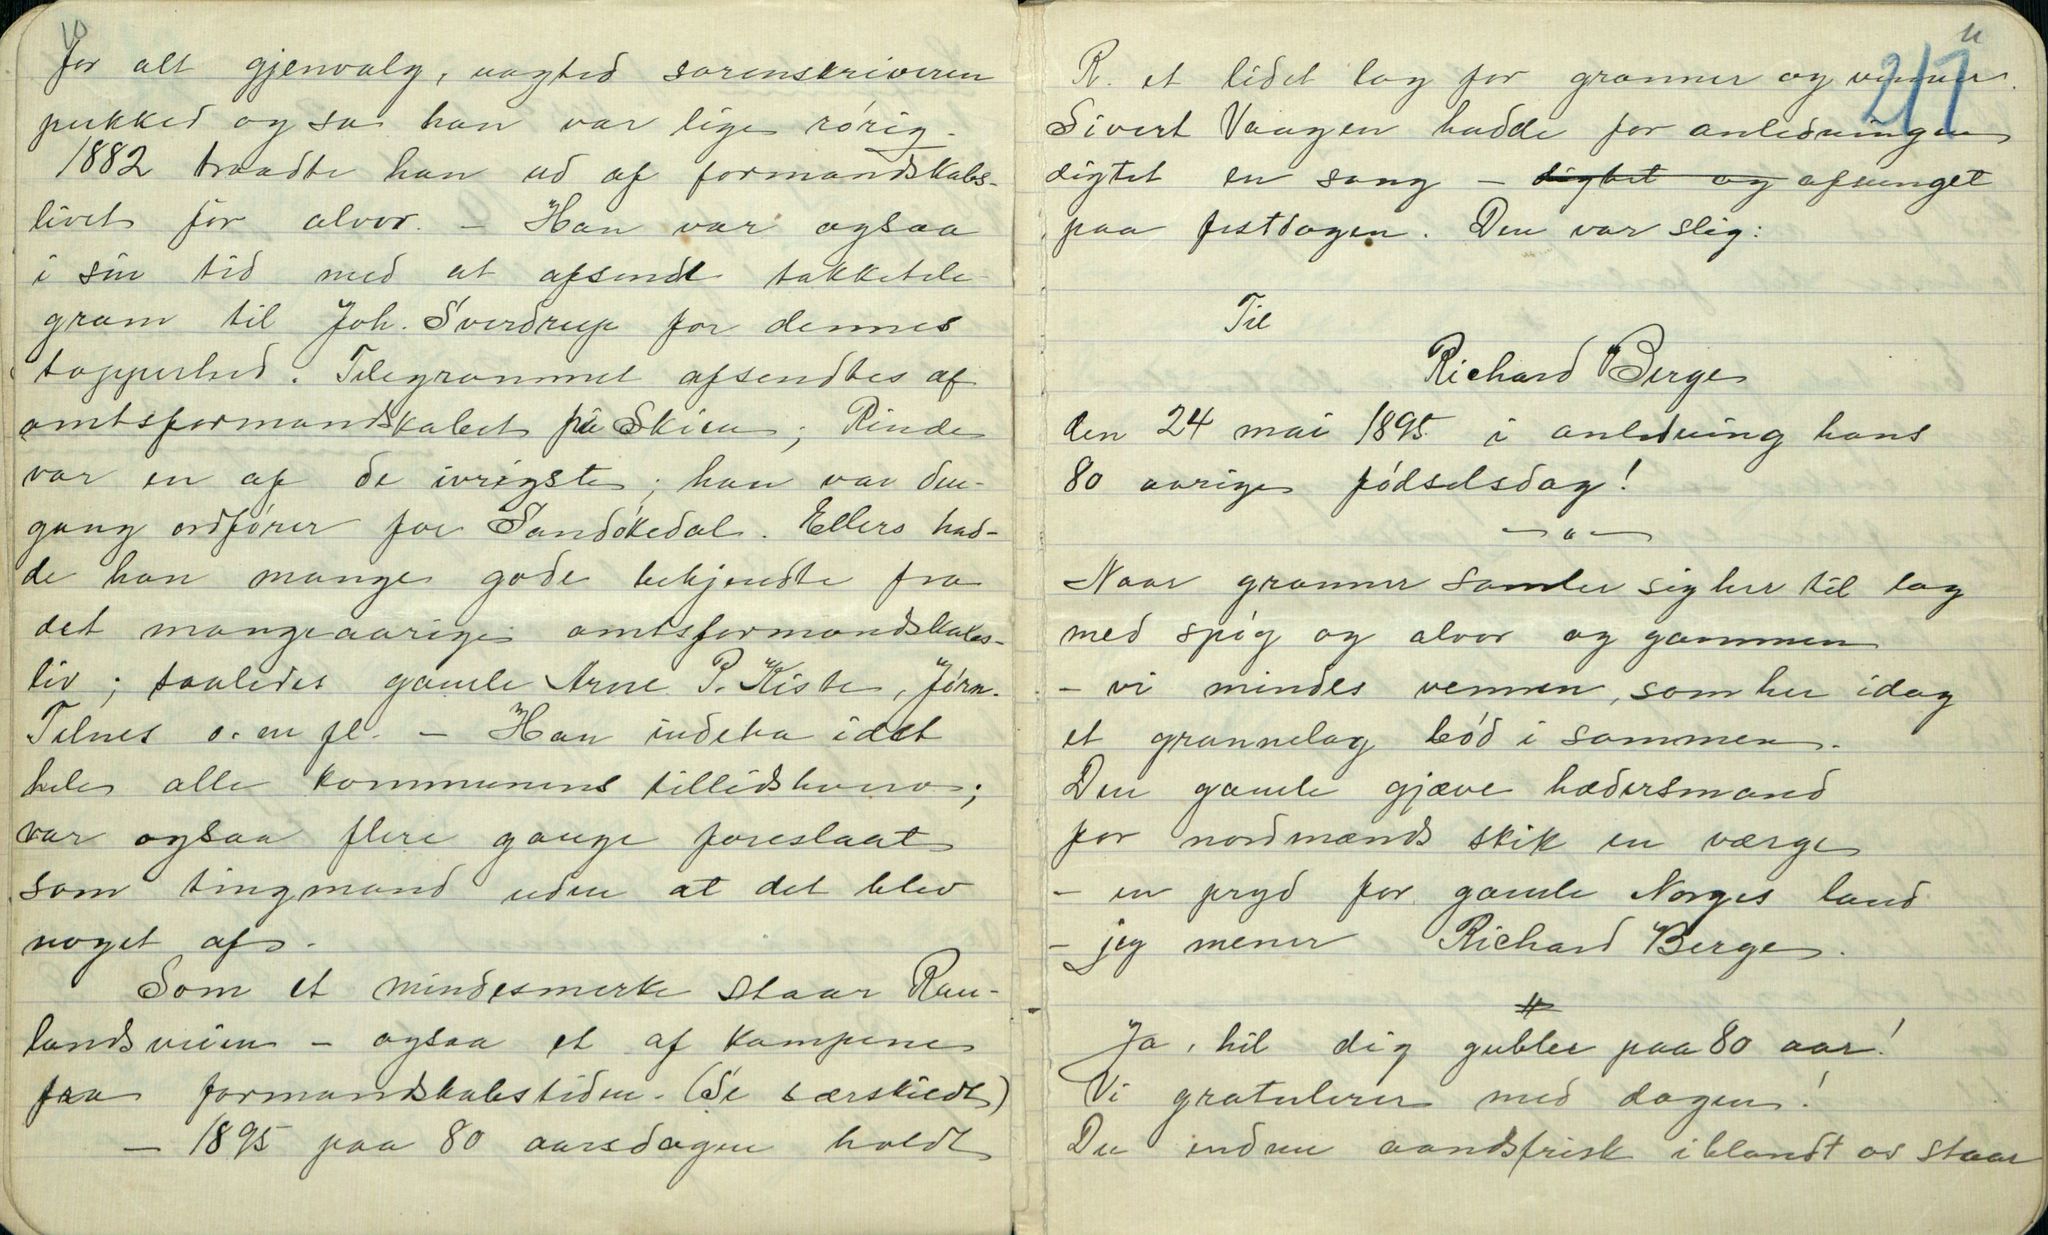 10
for alt gjenvalg, uagted sorenskriveren
pukked og sa han var lige rørig.
1882 traadte han ud af formandskabs-
livet for alvor. – Han var ogsaa
i sin tid med at afsende takketele-
gram til Joh. Sverdrup for dennes
tapperhed. Telegrammet afsendtes af
amtsformandskabet på Skien; Rinde
var en af de ivrigste; han var den-
gang ordfører for Sandøkedal. Ellers had-
de han mange gode bekjendte fra
det mangeaarige amtsformandskabs-
liv; saaledes gamle Arne P. Kiste, Jørn.
Tilnes o. en fl. – Han indeha idet
hele alle kommunens tillidshverv;
var ogsaa flere gange foreslaat
som tingmand uden at det blev
noget af.
Som et mindesmerke staar Rau-
landsveien – ogsaa et af kampene
fra formandskabstiden. (Se særskiedt)
– 1895 paa 80 aarsdagen holdt
11
217
R. et lidet lag for granner og venner.
Sivert Vaagen hadde for anledningen
digtet en sang – digtet og afsunget
paa festdagen. Den var slig:
Til
Richard Berge
den 24 mai 1895 i anledning hans
80 aarige fødselsdag!
– " –
Naar granner samler sig her til lag
med spøg og alvor og gammen
– vi mindes vennen, som her idag
et grannelag bød i sammen.
Den gamle gjæve hædersmand
for nordmænds skik en værge
– en pryd for gamle Norges land
– jeg mener Richard Berge.
Ja, hil dig gubbe paa 80 aar!
Vi gratulerer med dagen!
Du endnu aandsfrisk iblandt os staar